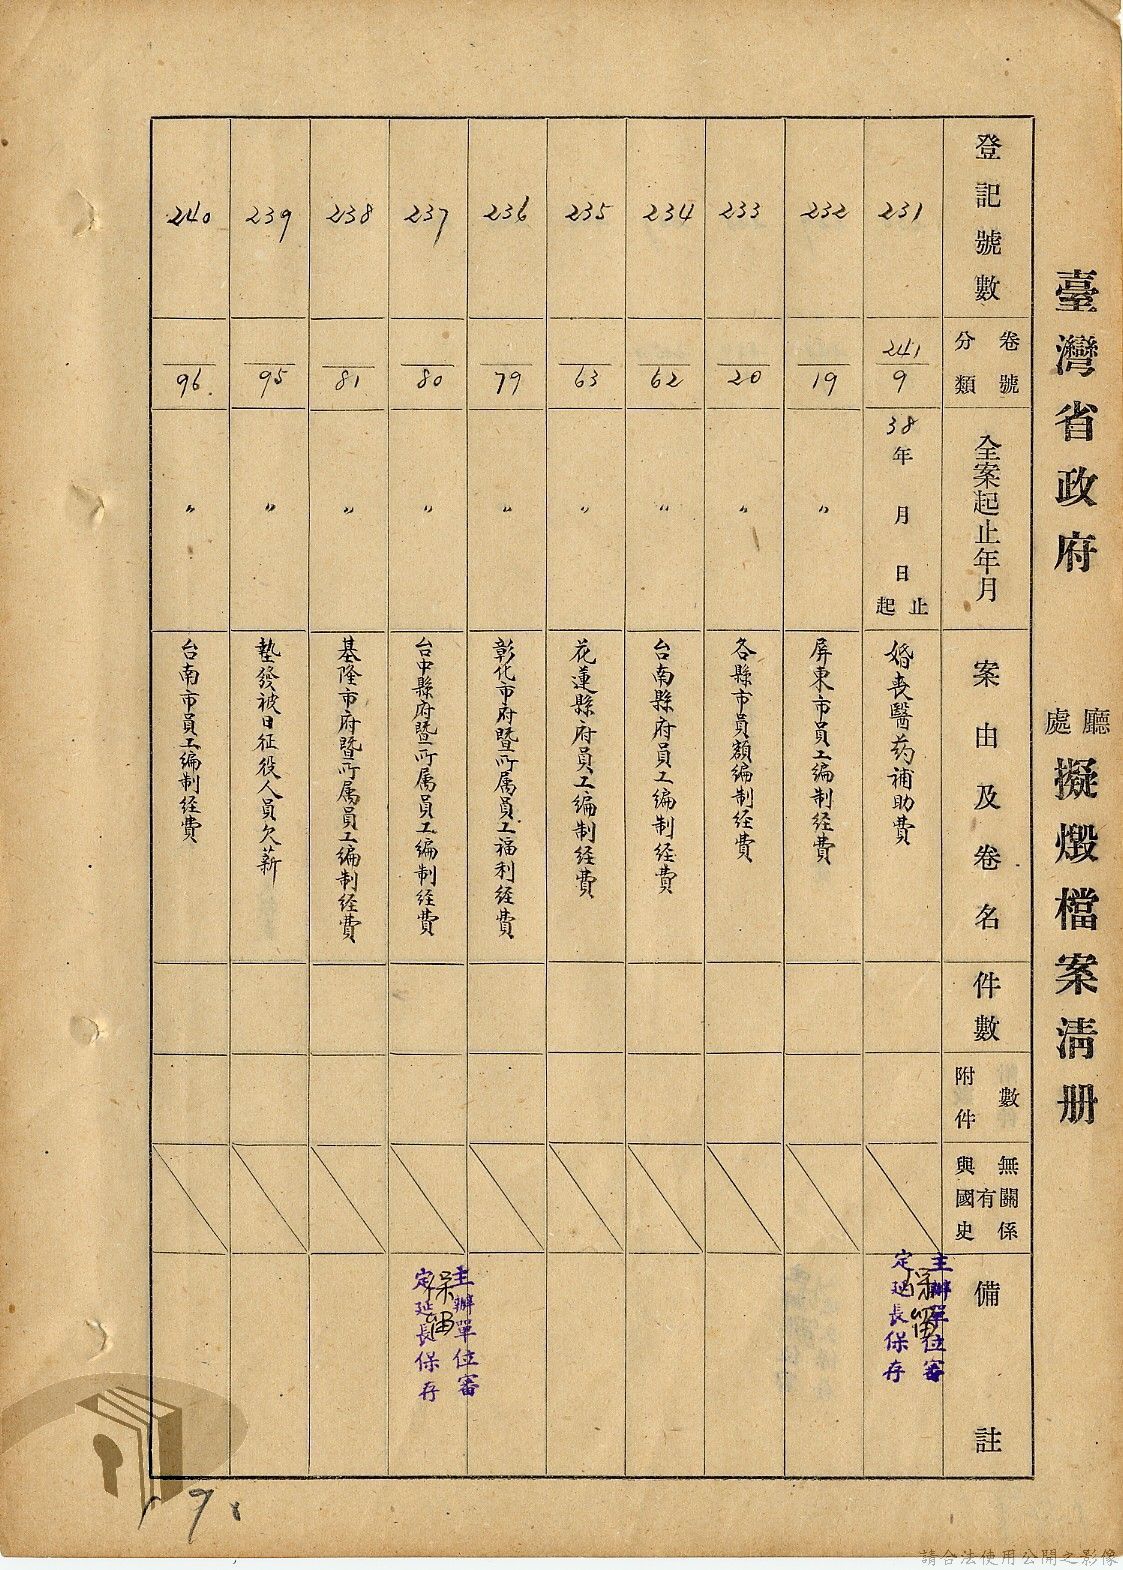 臺灣省政府 廳處 擬燬檔案清册
登記號數
卷號分類
全案起止年月
案由及卷名
件數
附件數
與國史有無關係
備註
231
241
9
38年 月 日起止
婚丧醫药補助費
主辦單位審定延長保存
保留
232
19
〃
屏東市員工編制経費
233
20
〃
各縣市員額編制経費
234
62
〃
台南縣府員工编制経費
235
63
〃
花蓮縣府員工编制経費
236
79
〃
彰化市府暨所属員工福利経費
237
80
〃
台中縣府暨所属員工编制経費
主辦單位審定延長保存
保留
238
81
〃
基隆市府暨所属員工编制経費
239
95
〃
墊發被日征役人員欠薪
240
96.
〃
台南市員工编制経費
請合法使用公開之影像